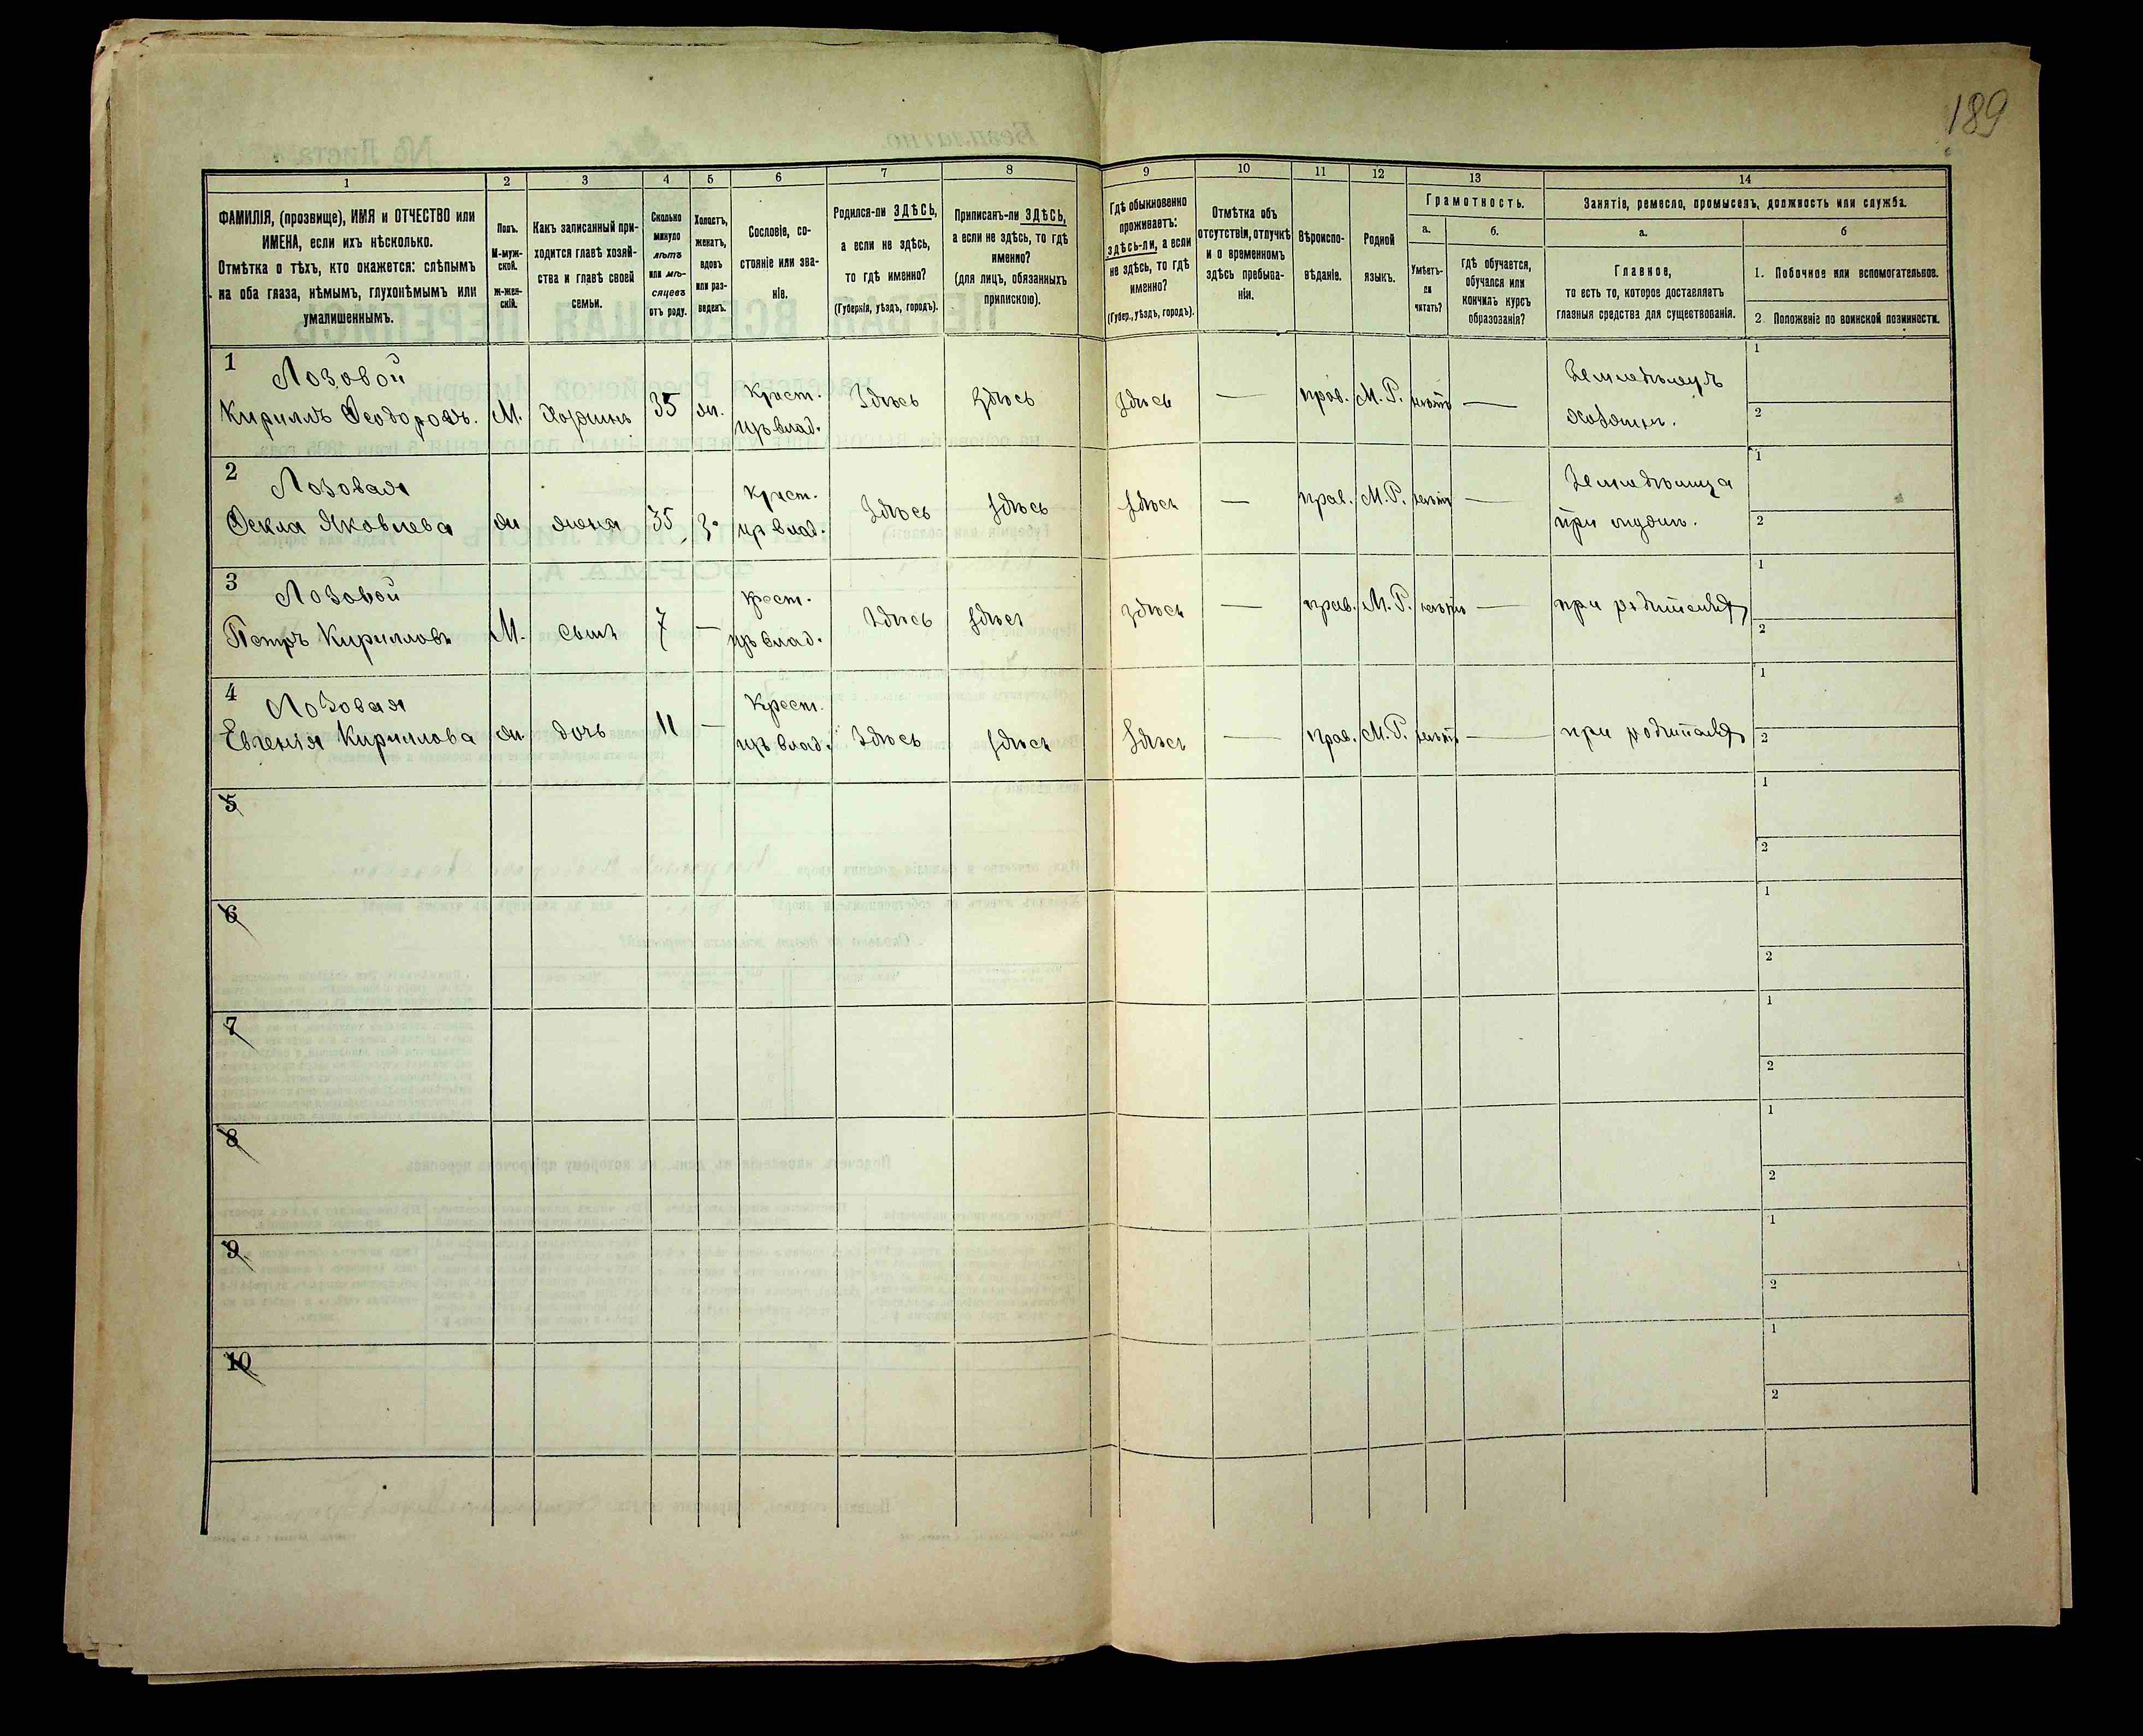 189
1
2
3
4
5
6
7
8
9
10
11
12
13
14
ФАМИЛІЯ, (прозвище), ИМЯ и ОТЧЕСТВО или
ИМЕНА, если ихъ нѣсколько.
Отмѣтка о тѣхъ, кто окажется: слѣпымъ
на оба глаза, нѣмымъ, глухонѣмымъ или
умалишеннымъ.
Полъ.
М-муж-
ской.
ж-жен-
скій.
Какъ записанный при-
ходится главѣ хозяй-
ства и главѣ своей
семьи.
Сколько
минуло
лѣтъ
или мѣ-
сяцевъ
отъ роду.
Холостъ,
женатъ,
вдовъ
или раз-
веденъ.
Сословіе, со-
стояніе или зва-
ніе.
Родился-ли ЗДѢСЬ,
а если не здѣсь,
то гдѣ именно?
(Губернія, уѣздъ, городъ).
Приписанъ-ли ЗДѢСЬ,
а если не здѣсь, то гдѣ
именно?
(для лицъ, обязанныхъ
припискою).
Гдѣ обыкновенно
проживаетъ:
здѣсь-ли, а если
не здѣсь, то гдѣ
именно?
(Губер., уѣздъ, городъ).
Отмѣтка объ
отсутствіи, отлучкѣ
и о временномъ
здѣсь пребыва-
ніи.
Вѣроиспо-
вѣданіе.
Родной
языкъ.
Грамотность.
а.
Умѣетъ-
ли
читать?
б.
Гдѣ обучается,
обучался или
кончилъ курсъ
образованія?
Занятіе, ремесло, промыселъ, должность или служба.
а.
Главное,
то есть то, которое доставляетъ
главныя средства для существованія.
б
1. Побочное или вспомогательное.
2. Положеніе по воинской повинности.
1
Лозовой
Кириллъ Ѳеодоровъ. М. Хозяинъ 35 жн. Крест. изъ влад. Здѣсь здѣсь здѣсь — прав. М. Р. нѣтъ — Земледѣлецъ хозяинъ. 1 2
2
Лозовая
Ѳекла Яковлева жн жена 35 з. Крест. изъ влад. Здѣсь здѣсь здѣсь — прав. М. Р. нѣтъ — Земледѣлица при мужѣ. 1 2
3
Лозовой
Петръ Кирилловъ М. сынъ 7 — Крест. изъ влад. Здѣсь здѣсь здѣсь — прав. М. Р. нѣтъ — при родителяхъ 1 2
4
Лозовая
Евгенія Кириллова жн дочь 11 — Крест. изъ влад. Здѣсь здѣсь здѣсь — прав. М. Р. нѣтъ — при родителяхъ 1 2
5 1 2
6 1 2
7 1 2
8 1 2
9 1 2
10 1 2